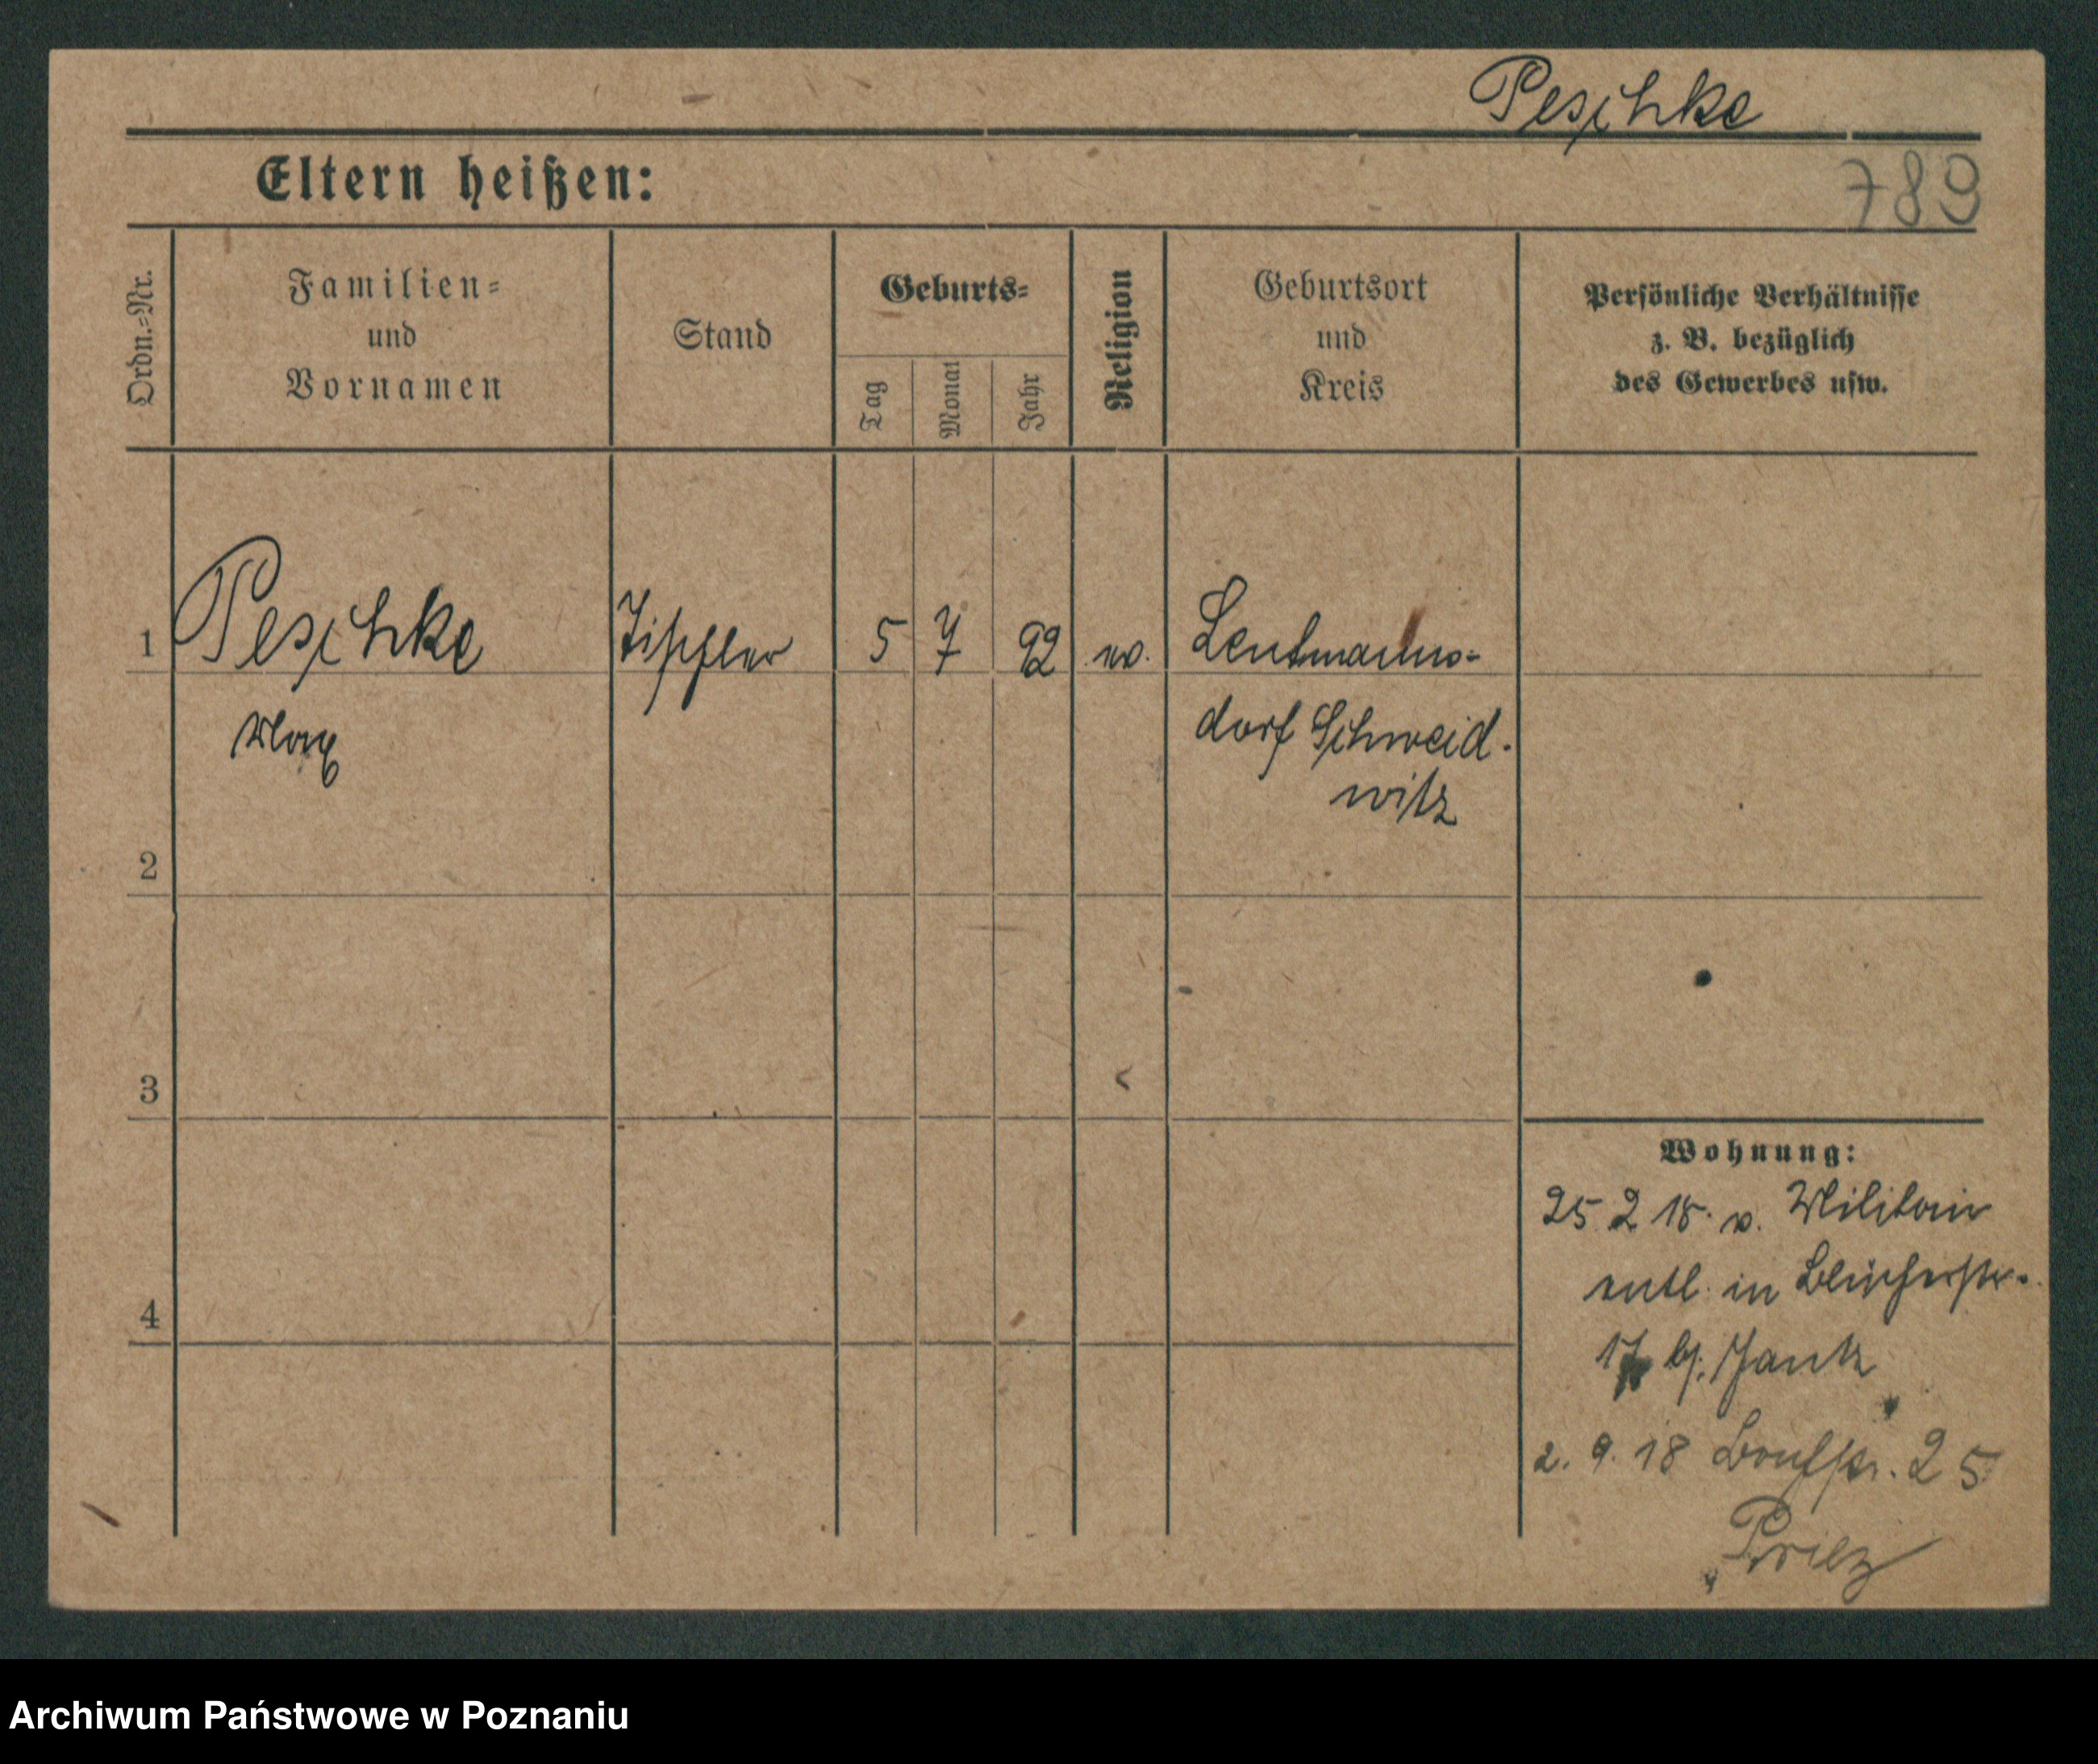 Peschke
Eltern heißen:
789
Ordn.-Nr.
Familien-
und
Vornamen
Stand
Geburts-
Tag
Monat
Jahr
Religion
Geburtsort
und
Kreis
Persönliche Verhältnisse
z. B. bezüglich
des Gewerbes usw.
1 Peschke Tischler 5 7 92 ev. Leutmanns-
Max dorf Schweid-
witz
2
3
4
Wohnung:
25 2 18. v. Militair
entl. in Blücherstr.
17 bj.
2. 9. 18 25